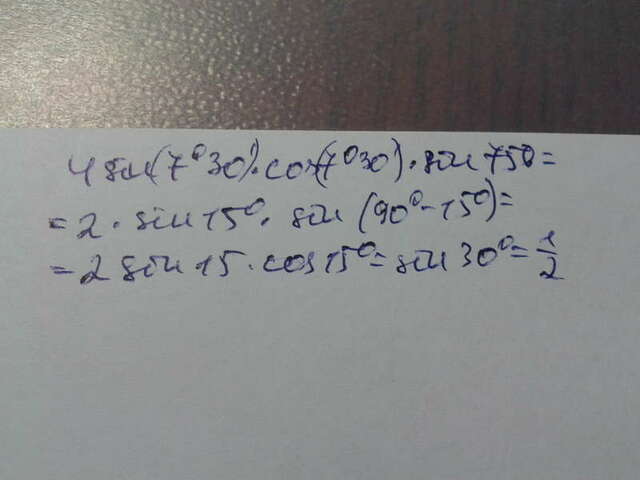 4 sin(7°30)·cos(7°30)·sin 75°=
=2·sin 15°·sin (90°-15°)=
=2 sin 15·cos 15°=sin 30°=1/2